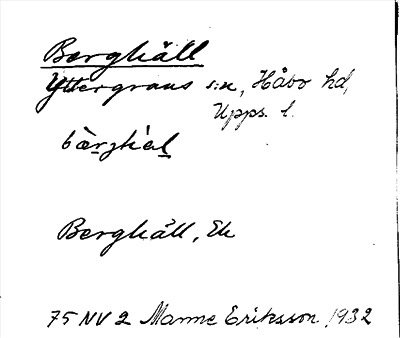 Berghäll
Yttergrans s:n, Håbo hd,
Upps. l.
bàrghel
Berghäll, Ek
75 NV 2 Manne Eriksson 1932